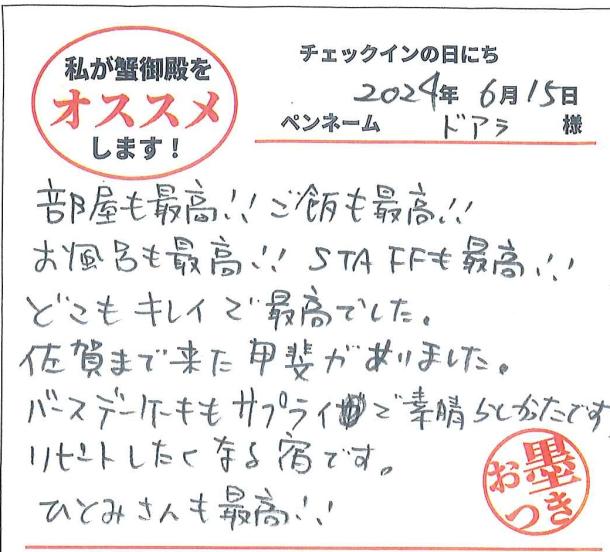 私が蟹御殿を
オススメ
します！
チェックインの日にち
2024年 6月15日
ペンネーム ドアラ 様
部屋も最高!! ご飯も最高!!
お風呂も最高!! STAFFも最高!!
どこもキレイで最高でした。
佐賀まで来た甲斐がありました。
バースデーケーキもサプライ で素晴らしかたです
リピートしたくなる宿です。
ひとみさんも最高!!
お墨つき